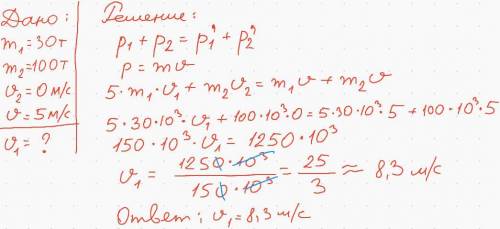 Дано:
m₁=30т
m₂=100т
v₂=0м/с
v=5м/с
v₁=?
Решение:
p₁+p₂=p₁'+p₂'
p=mv
5·m₁·v₁+m₂v₂=m₁v+m₂v
5·30·10³·v₁+100·10³·0=5·30·10³·5+100·10³·5
150·10³·v₁=1250·10³
v₁=1250·10³/150·10³=25/3≈8,3 м/с
Ответ: v₁=8,3 м/с